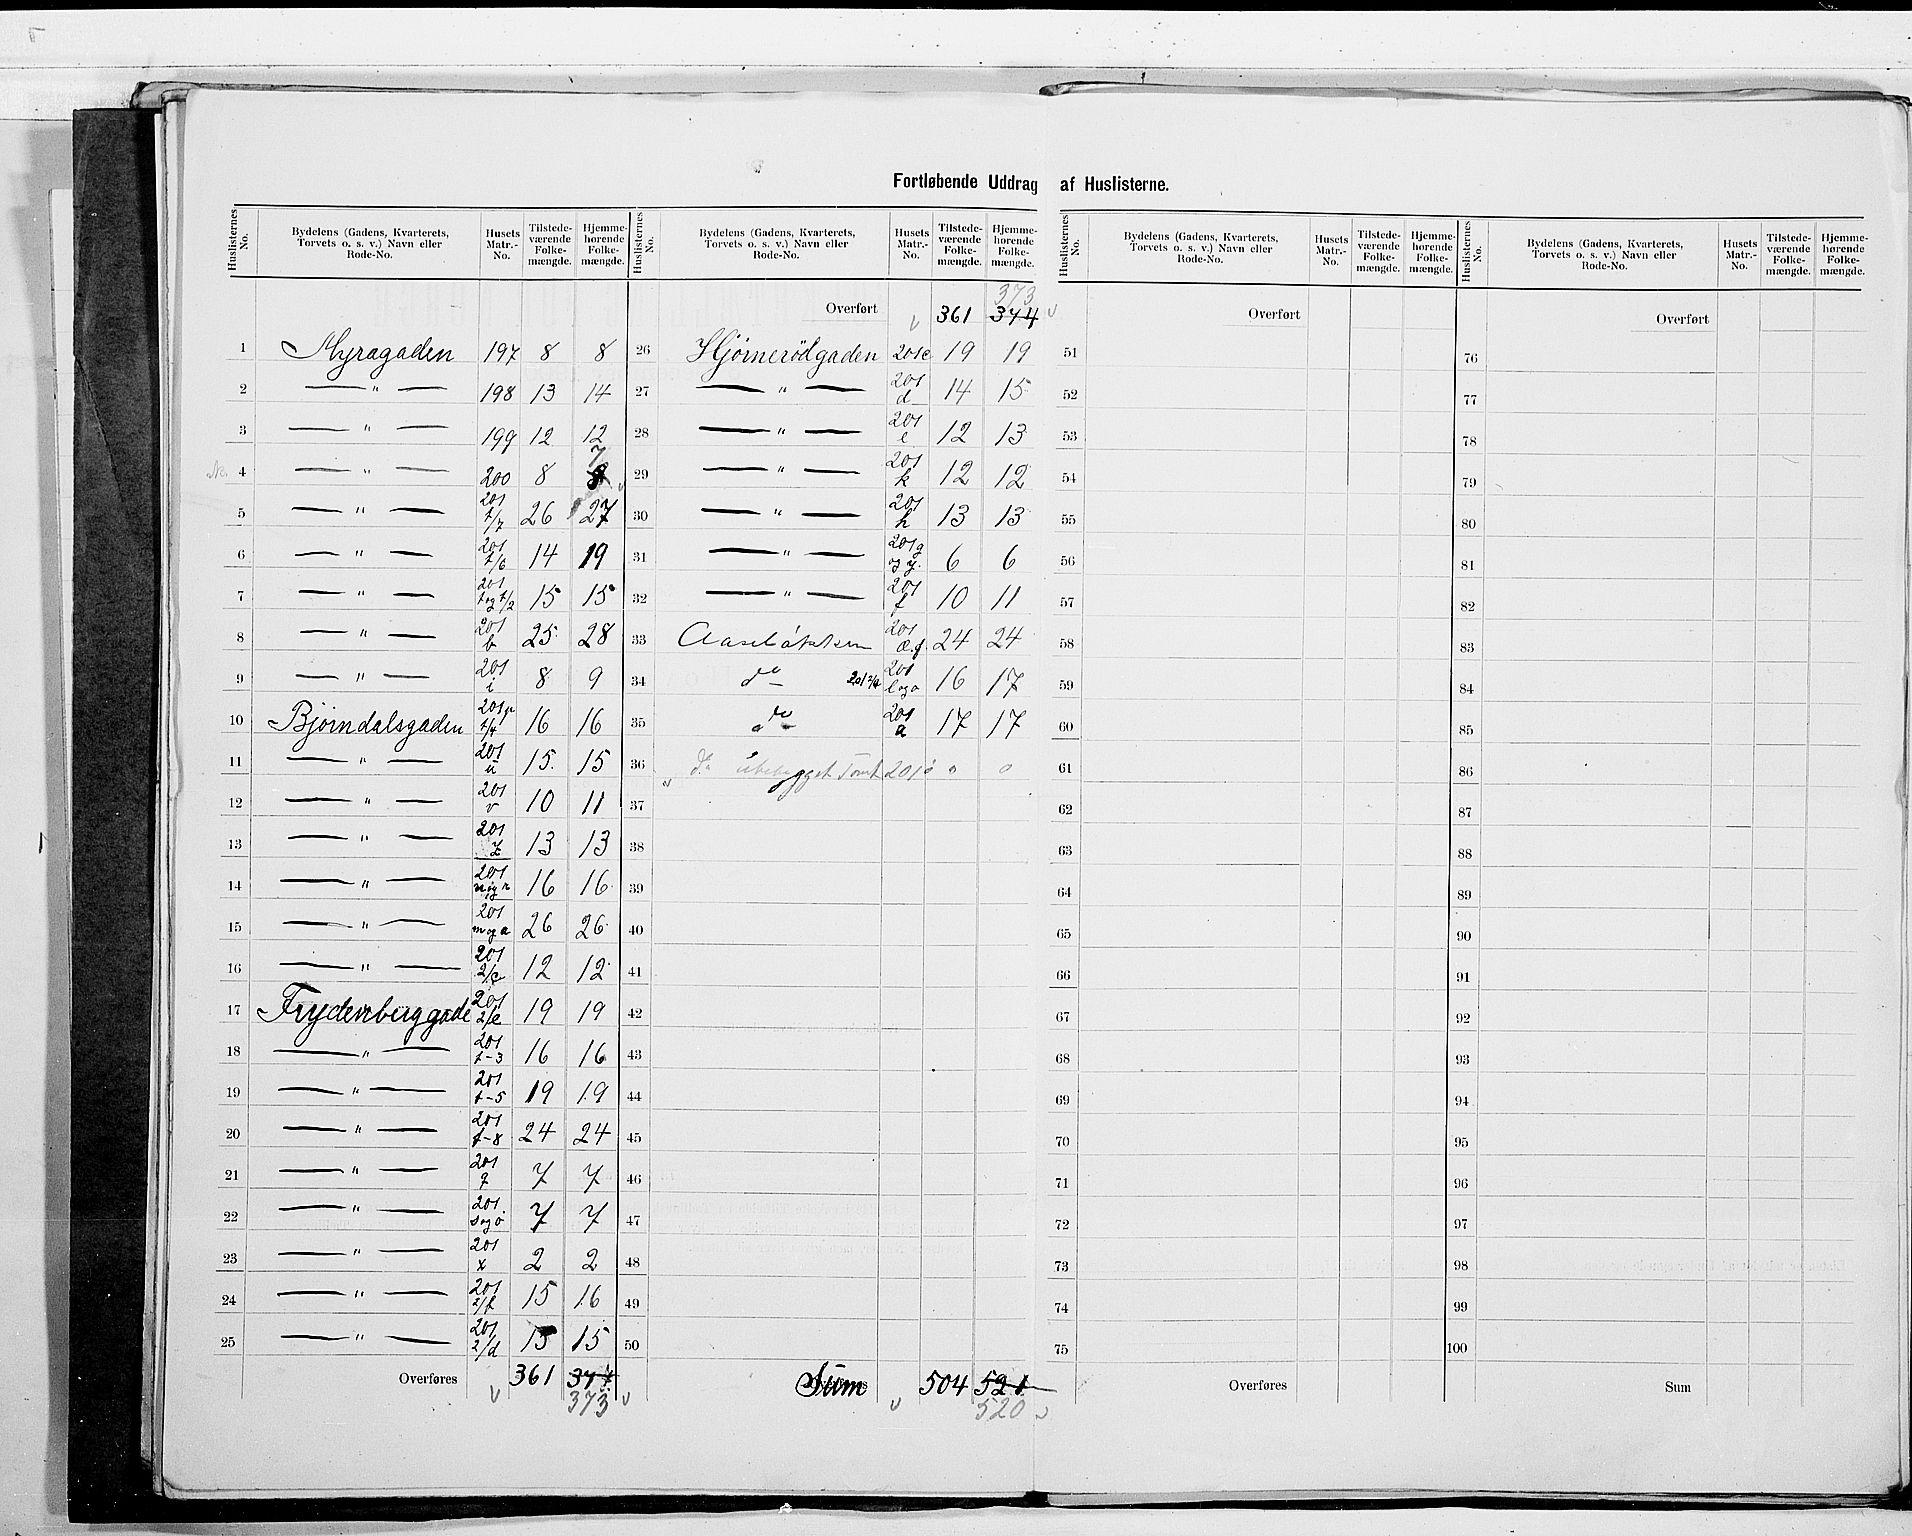 Fortløbende Uddrag af Huslisterne.
Huslisternes No. | Bydelens (Gadens, Kvarterets, Torvets o. s. v.) Navn eller Rode-No. | Husets Matr.-No. | Tilstedeværende Folkemængde. | Hjemmehørende Folkemængde.
1 Myragaden 197 8 8
2 — " — 198 13 14
3 — " — 199 12 12
4 — " — 200 8 7
5 — " — 201 t/7 26 27
6 — " — 201 t/6 14 19
7 — " — 201 t og t/2 15 15
8 — " — 201 b 25 28
9 — " — 201 i 8 9
10 Bjørndalsgaden 201 p t/4 16 16
11 — " — 201 u 15 15
12 — " — 201 v 10 11
13 — " — 201 z 13 13
14 — " — 201 16 16
15 — " — 201 m og a 26 26
16 — " — 201 2/c 12 12
17 Frydenberggade 201 2/e 19 19
18 — " — 201 t-3 16 16
19 — " — 201 t-5 19 19
20 — " — 201 t-8 24 24
21 — " — 201 q 7 7
22 — " — 201 s og ø 7 7
23 — " — 201 x 2 2
24 — " — 201 2/f 15 16
25 — " — 201 2/d 15 15
Overføres 361 374
373
Huslisternes No. | Bydelens (Gadens, Kvarterets, Torvets o. s. v.) Navn eller Rode-No. | Husets Matr.-No. | Tilstedeværende Folkemængde. | Hjemmehørende Folkemængde.
373
Overført 361 374
26 Hjørnerødgaden 201 c 19 19
27 — " — 201 d 14 15
28 — " — 201 e 12 13
29 — " — 201 k 12 12
30 — " — 201 h 13 13
31 — " — 201 g og y. 6 6
32 — " — 201 f 10 11
33 201 æ. 24 24
34 do 201 2/a 201 l og o 16 17
35 do 201 a 17 17
36 do ubebygget Tomt 201 0 0
37
38
39
40
41
42
43
44
45
46
47
48
49
50
Sum 504 521
520
Huslisternes No. | Bydelens (Gadens, Kvarterets, Torvets o. s. v.) Navn eller Rode-No. | Husets Matr.-No. | Tilstedeværende Folkemængde. | Hjemmehørende Folkemængde.
Overført
51
52
53
54
55
56
57
58
59
60
61
62
63
64
65
66
67
68
69
70
71
72
73
74
75
Overføres
Huslisternes No. | Bydelens (Gadens, Kvarterets, Torvets o. s. v.) Navn eller Rode-No. | Husets Matr.-No. | Tilstedeværende Folkemængde. | Hjemmehørende Folkemængde.
Overført
76
77
78
79
80
81
82
83
84
85
86
87
88
89
90
91
92
93
94
95
96
97
98
99
100
Sum